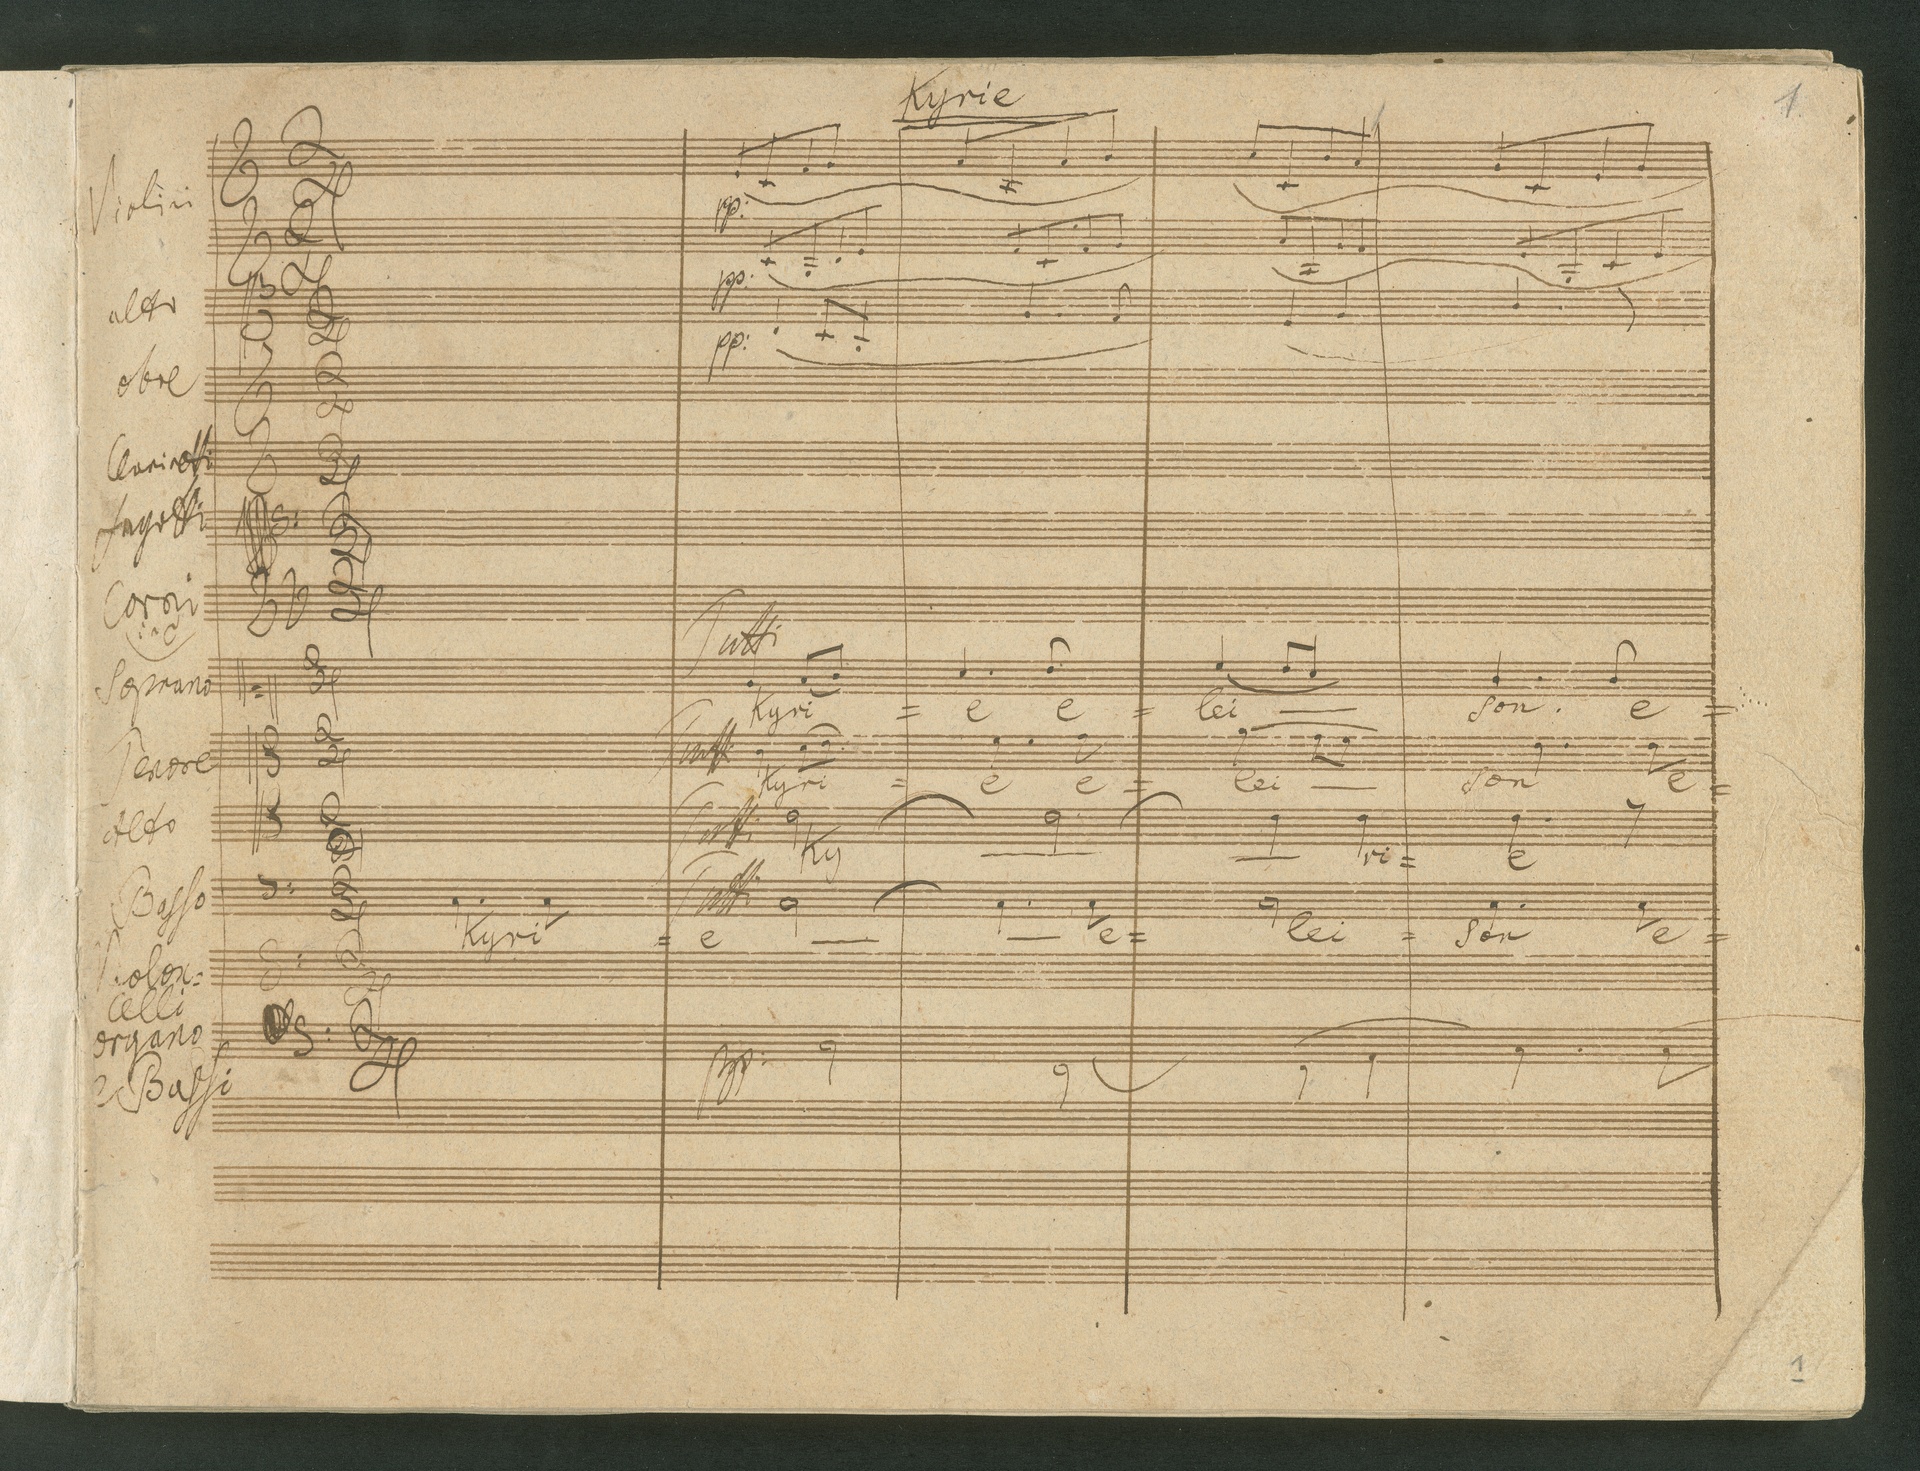 Kyrie
1
Violini
pp:
pp:
alto
pp:
oboe
Clarinetti
fagotti
Corni
in C
Tutti
Soprano
Kyri = e e = lei son. e =
Tenore
Tutti
Kyri = e e = lei son e =
Alto
Tutti
Ky ri = e
Basso
Tutti
Kyri = e e = lei = son e =
Violon=
celli
organo
e Bassi
pp:
1